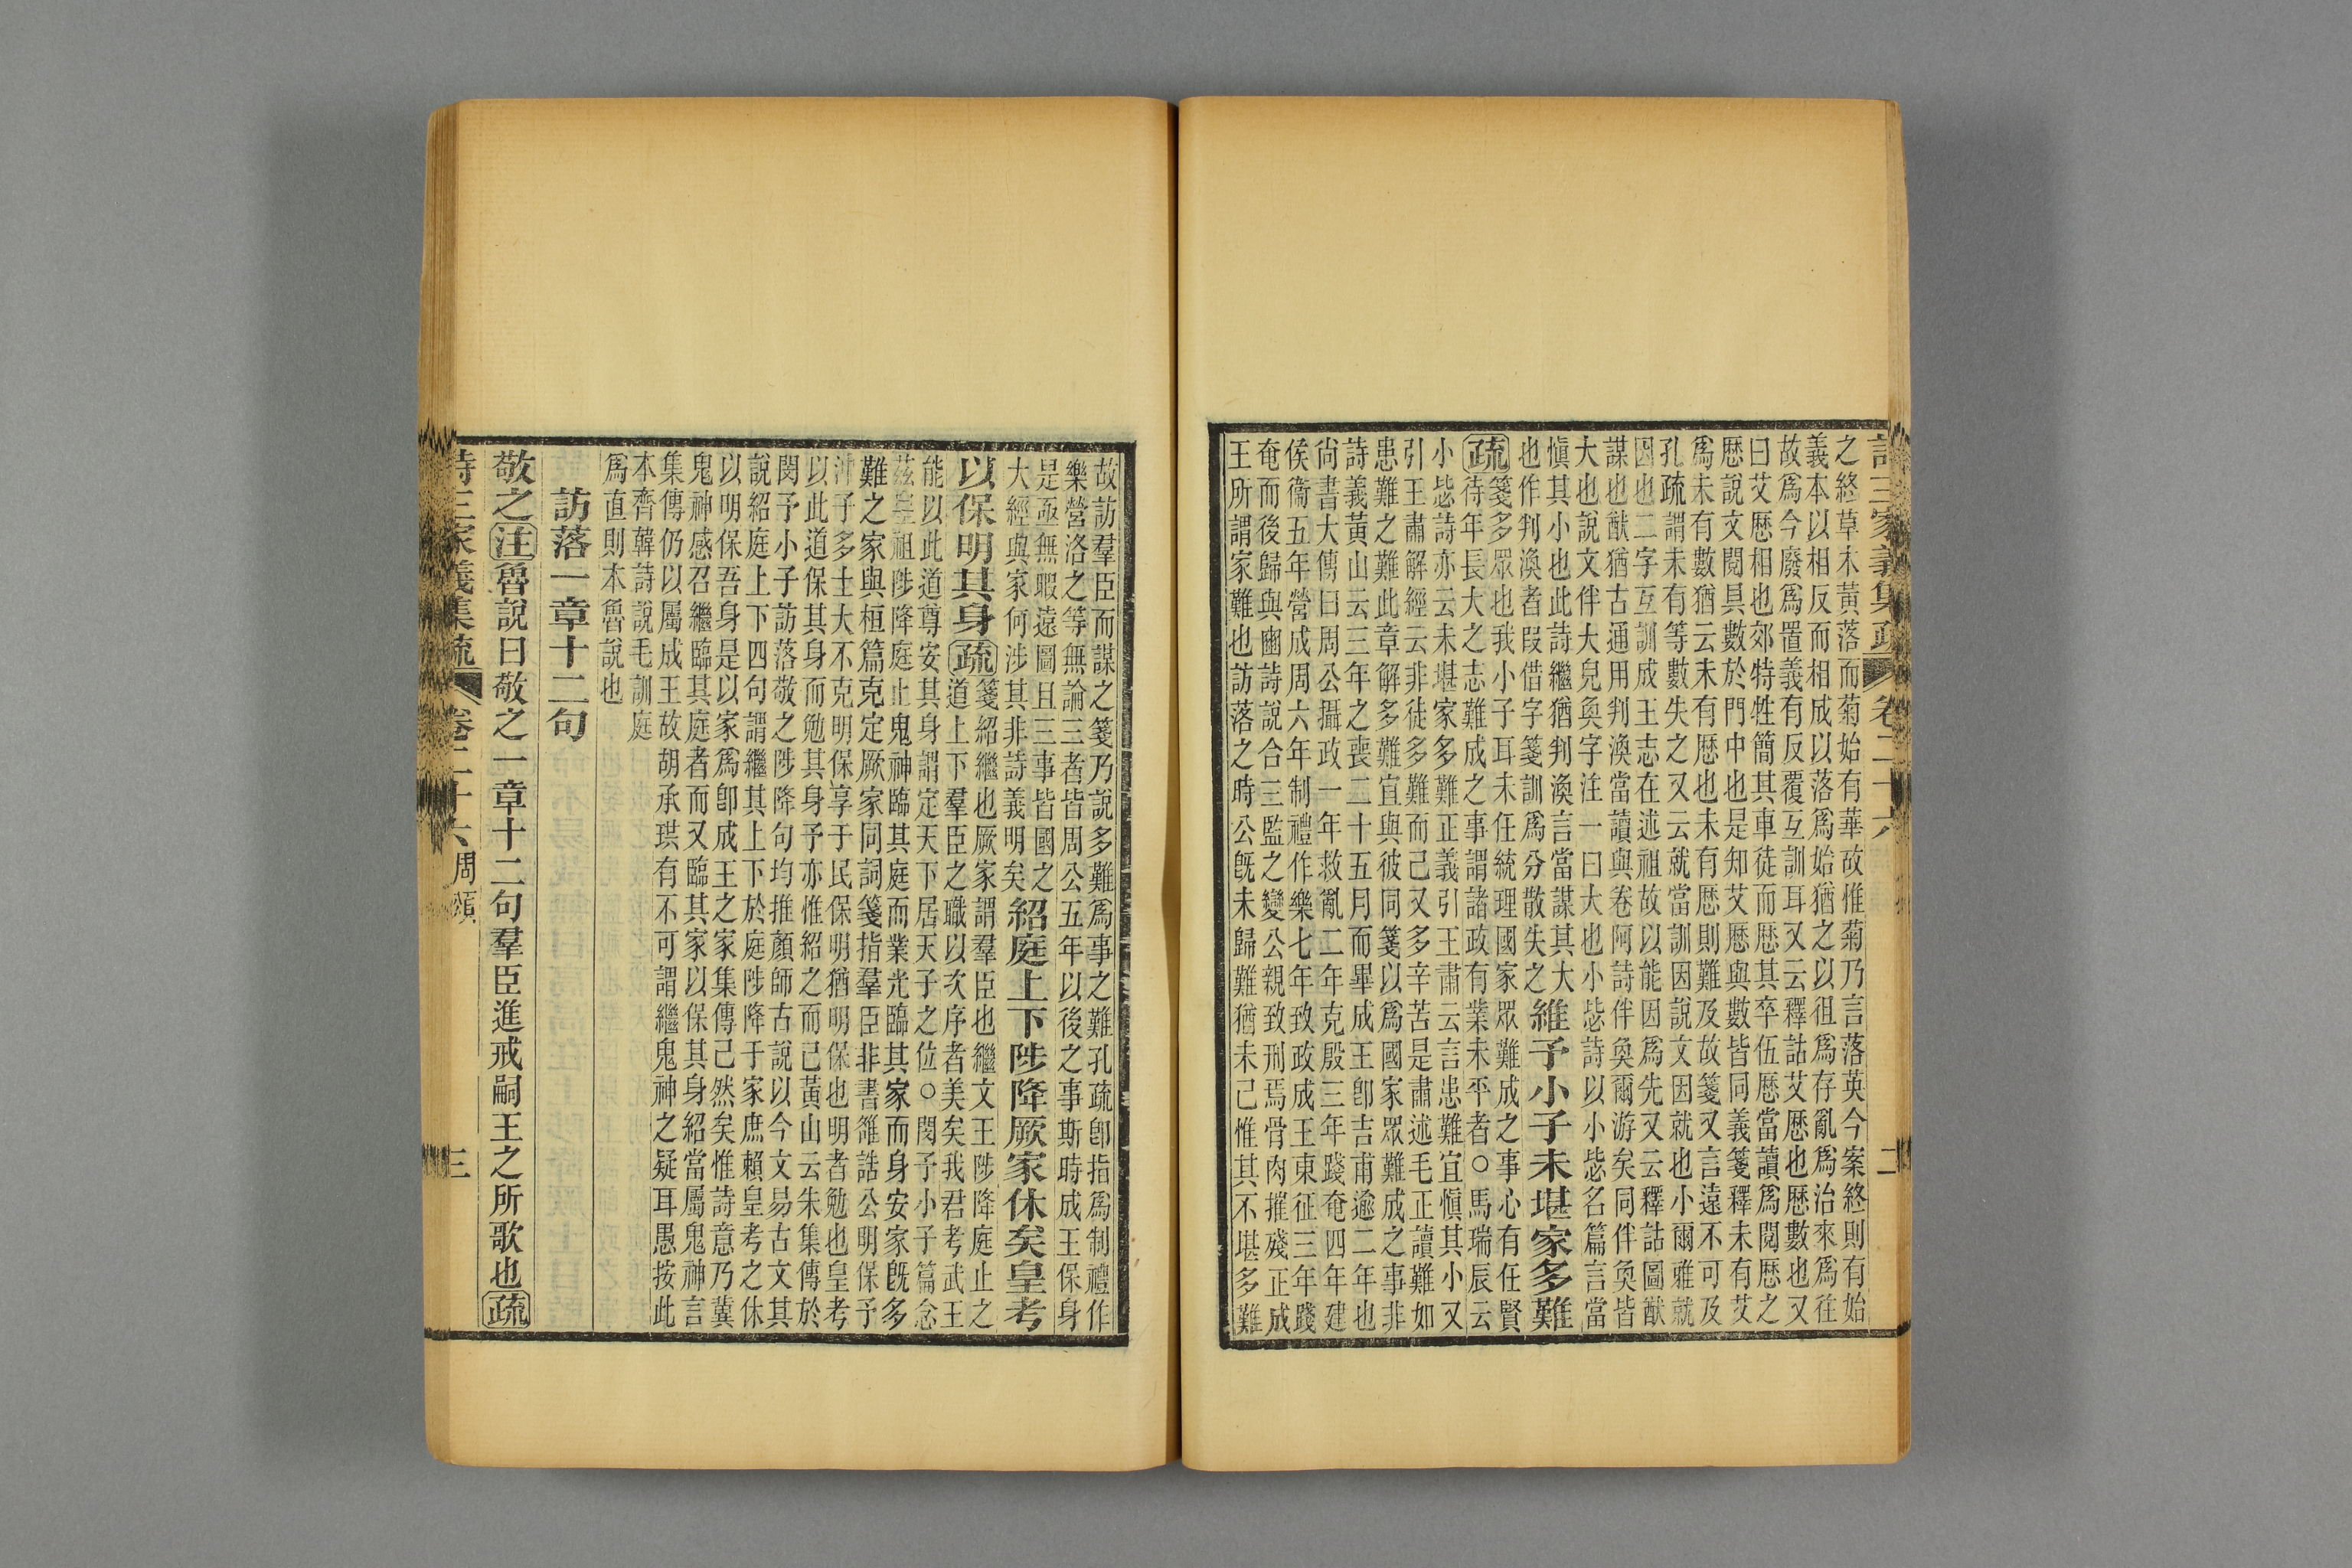 詩三家義集疏 卷二十六 二
之終草木黃落而菊始有華故惟菊乃言落英今案終則有始
義本以相反而相成以落爲始猶之以徂爲存亂爲治來爲往
故爲今廢爲置義有反覆互訓耳又云釋詁艾歷也歷數也又
曰艾歷相也郊特牲簡其車徒而歷其卒伍歷當讀爲閱歷之
歷說文閱具數於門中也是知艾歷與數皆同義箋釋未有艾
爲未有數猶云未有歷也未有歷則難及故箋又言遠不可及
孔疏謂未有等數失之又云就當訓因說文因就也小爾雅就
因也二字互訓成王志在述祖故以能因爲先又云釋詁圖猷
謀也猷猶古通用判渙當讀與卷阿詩伴奐爾游矣同伴奐皆
大也說文伴大皃奐字注一曰大也小毖詩以小毖名篇言當
愼其小也此詩繼猶判渙言當謀其大 維予小子未堪家多難
也作判渙者叚借字箋訓爲分散失之
疏箋多眾也我小子耳未任統理國家眾難成之事心有任賢
待年長大之志難成之事謂諸政有業未平者○馬瑞辰云
小毖詩亦云未堪家多難正義引王肅云言患難宜愼其小又
引王肅解經云非徒多難而已又多辛苦是肅述毛正讀難如
患難之難此章解多難宜與彼同箋以爲國家眾難成之事非
詩義黃山云三年之喪二十五月而畢成王卽吉甫逾二年也
尙書大傳曰周公攝政一年救亂二年克殷三年踐奄四年建
侯衞五年營成周六年制禮作樂七年致政成王東征三年踐
奄而後歸與豳詩說合三監之變公親致刑焉骨肉摧殘正成
王所謂家難也訪落之時公旣未歸難猶未已惟其不堪多難
故訪羣臣而謀之箋乃說多難爲事之難孔疏卽指爲制禮作
樂營洛之等無論三者皆周公五年以後之事斯時成王保身
是亟無暇遠圖且三事皆國之
大經與家何涉其非詩義明矣 紹庭上下陟降厥家休矣皇考
以保明其身疏箋紹繼也厥家謂羣臣也繼文王陟降庭止之
道上下羣臣之職以次序者美矣我君考武王
能以此道尊安其身謂定天下居天子之位○閔予小子篇念
茲皇祖陟降庭止鬼神臨其庭而業光臨其家而身安家旣多
難之家與桓篇克定厥家同詞箋指羣臣非書雒誥公明保予
沖子多士大不克明保享于民保明猶明保也明者勉也皇考
以此道保其身而勉其身予亦惟紹之而已黃山云朱集傳於
閔予小子訪落敬之陟降句均推顏師古說以今文易古文其
說紹庭上下四句謂繼其上下於庭陟降于家庶賴皇考之休
以明保吾身是以家爲卽成王之家集傳己然矣惟詩意乃冀
鬼神感召繼臨其庭者而又臨其家以保其身紹當屬鬼神言
集傳仍以屬成王故胡承珙有不可謂繼鬼神之疑耳愚按此
本齊韓詩說毛訓庭
爲直則本魯說也
訪落一章十二句
敬之注魯說曰敬之一章十二句羣臣進戒嗣王之所歌也疏
詩三家義集疏 卷二十六 周頌 三